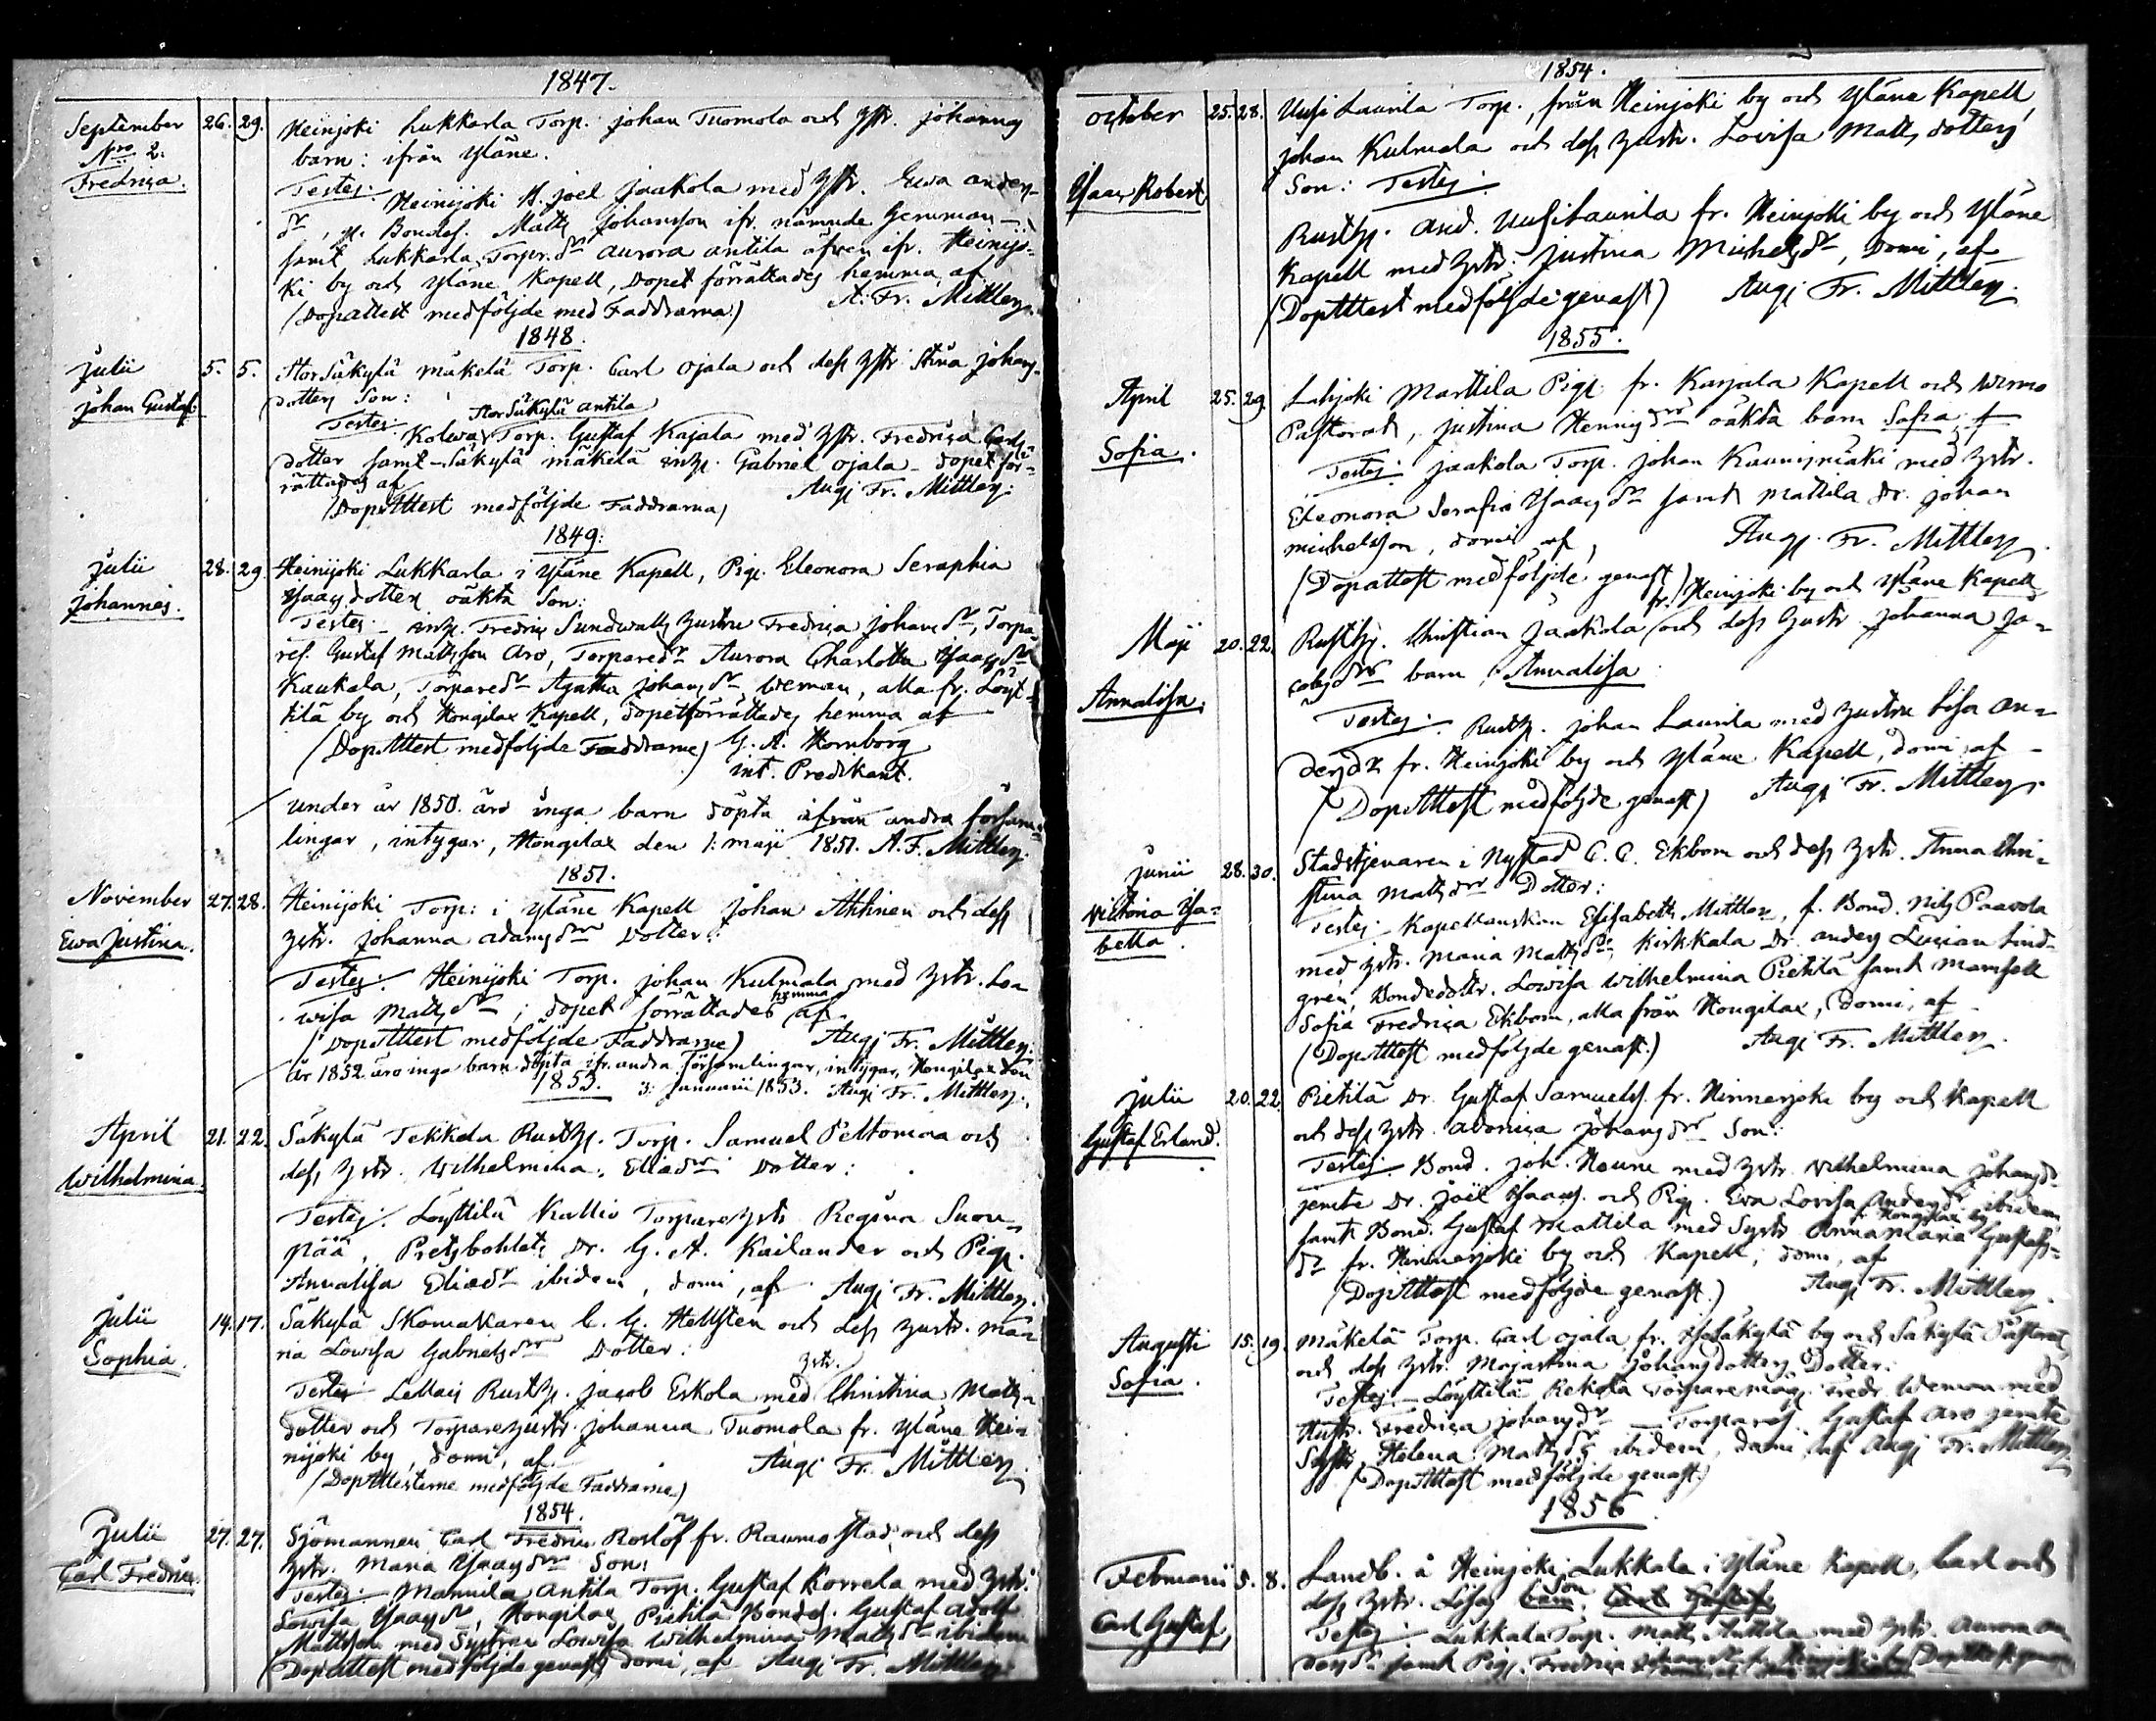 1847.
September 26. 29. Heinjoki Lukkarla Torp. Johan Tuomola och Hstr. Johannas
Nro 2. barn: ifrån Yläne.
Fredrica. Testes: Heinijoki B. Joel Jaakola med Hstr. Ewa Anders-
dr, Bondes. Matts Johansson ifr. nämnde hemman -
samt Lukkarla Torpr. dr Aurora Antila äfven ifr. Heinijo-
ki by och Yläne Kapell, Dopet förrättades hemma, af
(Dopattest medföljde med Faddrarna) A. Fr. Mittler.
1848.
Julii 5. 5. Stor Säkylä Mäkelä Torp. Carl Ojala och dess Hstr Stina Johans-
Johan Gustaf. dotters Son:
Stor Säkylä Antila
Testes: Torp. Gustaf Kajala med Hstr. Fredrica Carls-
dotter samt Säkylä Mäkelä Gabriel Ojala - Dopet för-
rättades af Aug. Fr. Mittler.
(DopAttest medföljde Faddrarna)
1849.
Julii 28. 29. Heinijoki Lukkarla i Yläne Kapell, Pig. Eleonora Seraphia
Johannes. Isaacsdotters oäkta Son:
Testes Fredric Sundwalls Hustru Fredrica Johansdr, Torpa-
res. Gustaf Mattsson Aro, Torparedr Aurora Charlotta Isaacsdr
Kaukala, Torparedr Agatha Johansdr Weman, alla fr. Löyt-
tilä by och Hongilax Kapell, dopet förrättades hemma af
(DopAttest medföljde Faddrarne) G. A. Hornborg
int. Predikant.
under år 1850. äro inga barn döpta ifrån andra försam-
lingar, intygar, Hongilax den 1. Maji 1851. A. F. Mittler.
1851.
November 27. 28. Heinijoki Torp. i Yläne Kapell Johan Ahlinen och dess
Ewa Justina. Hstr. Johanna Adamsdrs Dotter:
Testes: Heinijoki Torp. Johan Kulmala med Hstr. Lo-
hemma
wisa Mattsdr; dopet förrättades af
(DopAttest medföljde Faddrarne) Aug. Fr. Mittler.
År 1852. äro inga barn döpta ifr. andra Församlingar, intygar, Hongilax den
1853. 3. Januarii 1853. Aug. Fr. Mittler.
April 21. 22. Säkylä Tekkala Rusth. Torp. Samuel Peltomaa och
Wilhelmina. dess Hstr. Wilhelmina Eliædrs Dotter:
Testes: Löyttilä Kallio Torpare Hstr Regina Suon-
pää, Dr. G. A. Kailander och Pig.
Annalisa Eliædr ibidem, domi, af Aug. Fr. Mittler.
Julii 14. 17. Säkylä Skomakaren C. G. Hellsten och dess Hustr. Ma-
Sophia. ria Lowisa Gabrielsdrs Dotter:
Hstr.
Testes Rusth. Jacob Eskola med Christina Matts-
dotter och Torpare Hustr. Johanna Tuomola fr. Yläne Hei-
nijoki by, domi, af. Aug. Fr. Mittler.
(DopAttesterne medföljde Faddrarne)
1854.
Julii 27. 27. Sjömannen Carl Fredric Roslöf fr. Raumo stad och dess
Carl Fredric. Hstr. Maria Isaacsdrs Son:
Testes: Mannila Antila Torp. Gustaf Korrela med Hstr.
Lowisa Isaacsdr, Hongilax Pietilä Bondes. Gustaf Adolf
Mattsson med Systren Lowisa Wilhelmina Mattsdr ibidem
(DopAttest medföljde genast) domi, af Aug. Fr. Mittler.
1854.
October 25. 28. Uusi Laurila Torp. från Heinjoki by och Yläne Kapell
Johan Kulmala och dess Hustr. Lovisa Matts dotters
Isaac Robert Son: Testes:
Rusth. And. Uusi Laurila fr. Heinjoki by och Yläne
Kapell med Hstr. Justina Michelsdr, Domi, af
(DopAttest medföljde genast) Aug. Fr. Mittler.
1855.
April 25. 29. Lahjoki Marttila Pig. fr. Karjala Kapell och Wirmo
Sofia. Pastorat, Justina Henricsdrs oäkta barn Sofia.
Testes: Jaakola Torp. Johan Kaunismäki med Hstr.
Eleonora Serafia Isaacsdr samt Mattila Dr. Johan
Michelsson, domi af, Aug. Fr. Mittler.
(Dopattest medföljde genast)
fr. Heinjoki by och Yläne Kapell
Maji 20. 22. Rusth. Christian Jaakola och dess Hustr Johanna Ja-
cobsdrs barn Annalisa
Annalisa. Testes: Rusth. Johan Laurila med Hustru Lisa An-
dersdr fr. Heinjoki by och Yläne Kapell, domi, af -
(DopAttest medföljde genast) Aug. Fr. Mittler.
Junii 28. 30. Stadstjenaren i Nystad C. C. Ekbom och dess Hstr. Anna Chri-
Victoria Isa- stina Mattsdrs Dotter:
bella. Testes Kapellanskan Elisabeth Mittler, f. Bond. Nils Paavola
med Hstr. Maria Mattsdr, Kirkkala Dr. Anders Lucian Lind-
gren, Bondedottr. Lowisa Wilhelmina Pietilä samt Mamsell
Sofia Fredrica Ekbom, alla från Hongilax, domi, af
(DopAttest medföljde genast.) Aug. Fr. Mittler.
Julii 20. 22. Pietilä Dr. Gustaf Samuelss. fr. Hinnerjoki by och Kapell
Gustaf Erland. och dess Hstr. Johansdrs Son:
Testes: Bond. Joh. Heuru med Hstr Wilhelmina Johansdr
jemte Dr. Joël Isaacs. och Pig. Eva Lovisa Andersdr ibidem
Hongilax by
samt Bond. Gustaf Mattila med Systr Anna Maria Gustafs-
dr fr. Hinnerjoki by och Kapell; domi, af
(DopAttest medföljde genast.) Aug. Fr. Mittler.
Augusti 15. 19. Mäkelä Torp. Carl Ojala fr. IsoSäkylä by och Säkylä Pastorat
Sofia. och dess Hstr. Majastina Johansdotters Dotter:
Testes. Löyttilä Rekola Torpare måg Fredr. Weman med
Hustr. Fredrica Johansdr - Torpares. Gustaf Aro jemte
Systr. Helena Mattsdr ibidem, domi, af Aug. Fr. Mittler.
(DopAttest medföljde genast.)
1856
Februarii 5. 8. Landb. å Heinjoki Lukkala i Yläne Kapell, Carl och
Carl Gustaf, dess Hstr. Lisas Son
Testes: Lukkala Torp. Matts Anttila med Hstr. Aurora An
dersdr samt Pig. Fredrica